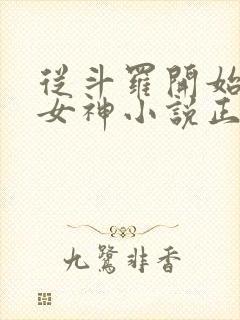 從斗羅開始
女神小說正
九鷺非香